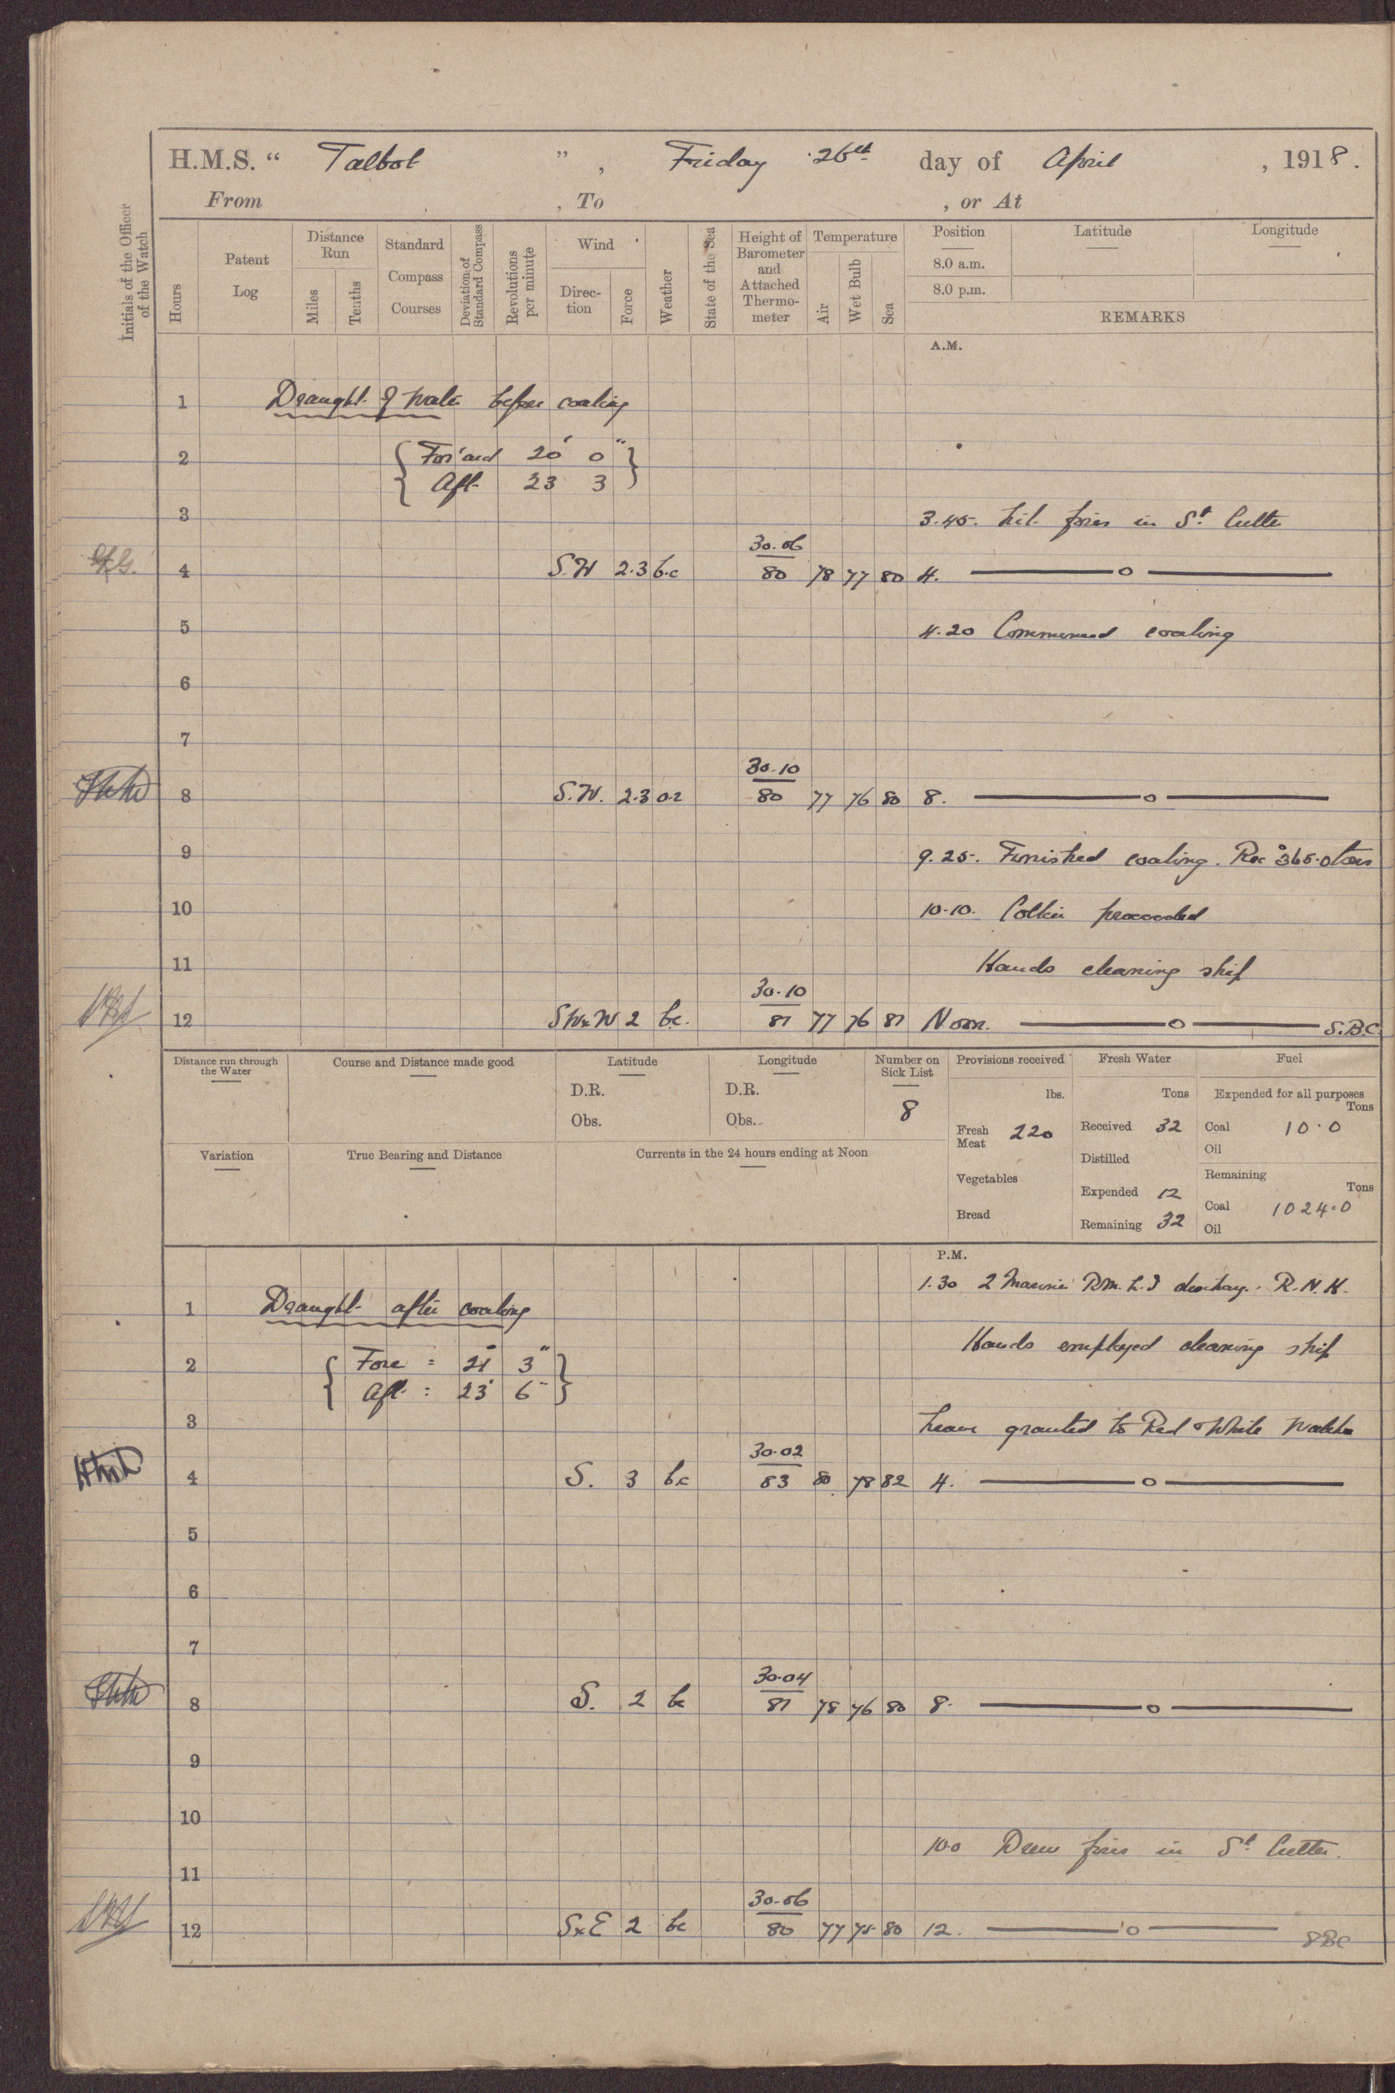 H.M.S. “ Talbot ” , Friday 26th day of April , 1918.
From , To , or At
Initials of the Officer of the Watch
Hours
Patent Log
Distance Run
Miles
Tenths
Standard Compass Courses
Deviation of Standard Compass
Revolutions per minute
Wind
Direction
Force
Weather
State of the Sea
Height of Barometer and Attached Thermometer
Temperature
Air
Wet Bulb
Sea
Position
8.0 a.m.
8.0 p.m.
Latitude
Longitude
REMARKS
A.M.
1 Draught of water before coaling
2 For'ard 20' 0"
Aft. 23 3
3 3.45. Lit fires in St Cutter
30.06
4 S.W 2.3 b.c 80 78 77 80 4. o
5 4.20 Commenced coaling
6
7
30.10
8 S.W. 2.3 80 77 76 80 8. o
9 9.25. Finished coaling. Recd 365.0 tons
10 10.10. Collier proceeded
11 Hands cleaning ship
30.10
12 SWxW 2 bc. 81 77 76 81 Noon. o S.B.C.
Distance run through the Water
Course and Distance made good
Latitude
D.R.
Obs.
Longitude
D.R.
Obs.
Number on Sick List
8
Provisions received
lbs.
Fresh Meat 220
Vegetables
Bread
Fresh Water
Tons
Received 32
Distilled
Expended 12
Remaining 32
Fuel
Expended for all purposes
Tons
Coal 10.0
Oil
Remaining
Tons
Coal 1024.0
Oil
Variation
True Bearing and Distance
Currents in the 24 hours ending at Noon
P.M.
1.30 2 Marines R.M.L.I R.N.H.
1 Draught after coaling
Hands employed cleaning ship
2 Fore = 21' 3"
Aft. : 23' 6"
3 Leave granted to Red & White Watches
30.02
4 S. 3 bc 83 80 78 82 4. o
5
6
7
30.04
8 S. 2 bc 81 78 76 80 8. o
9
10
10.0 Drew fires in St Cutter.
11
30.06
12 SxE 2 bc 80 77 75 80 12. o SBC